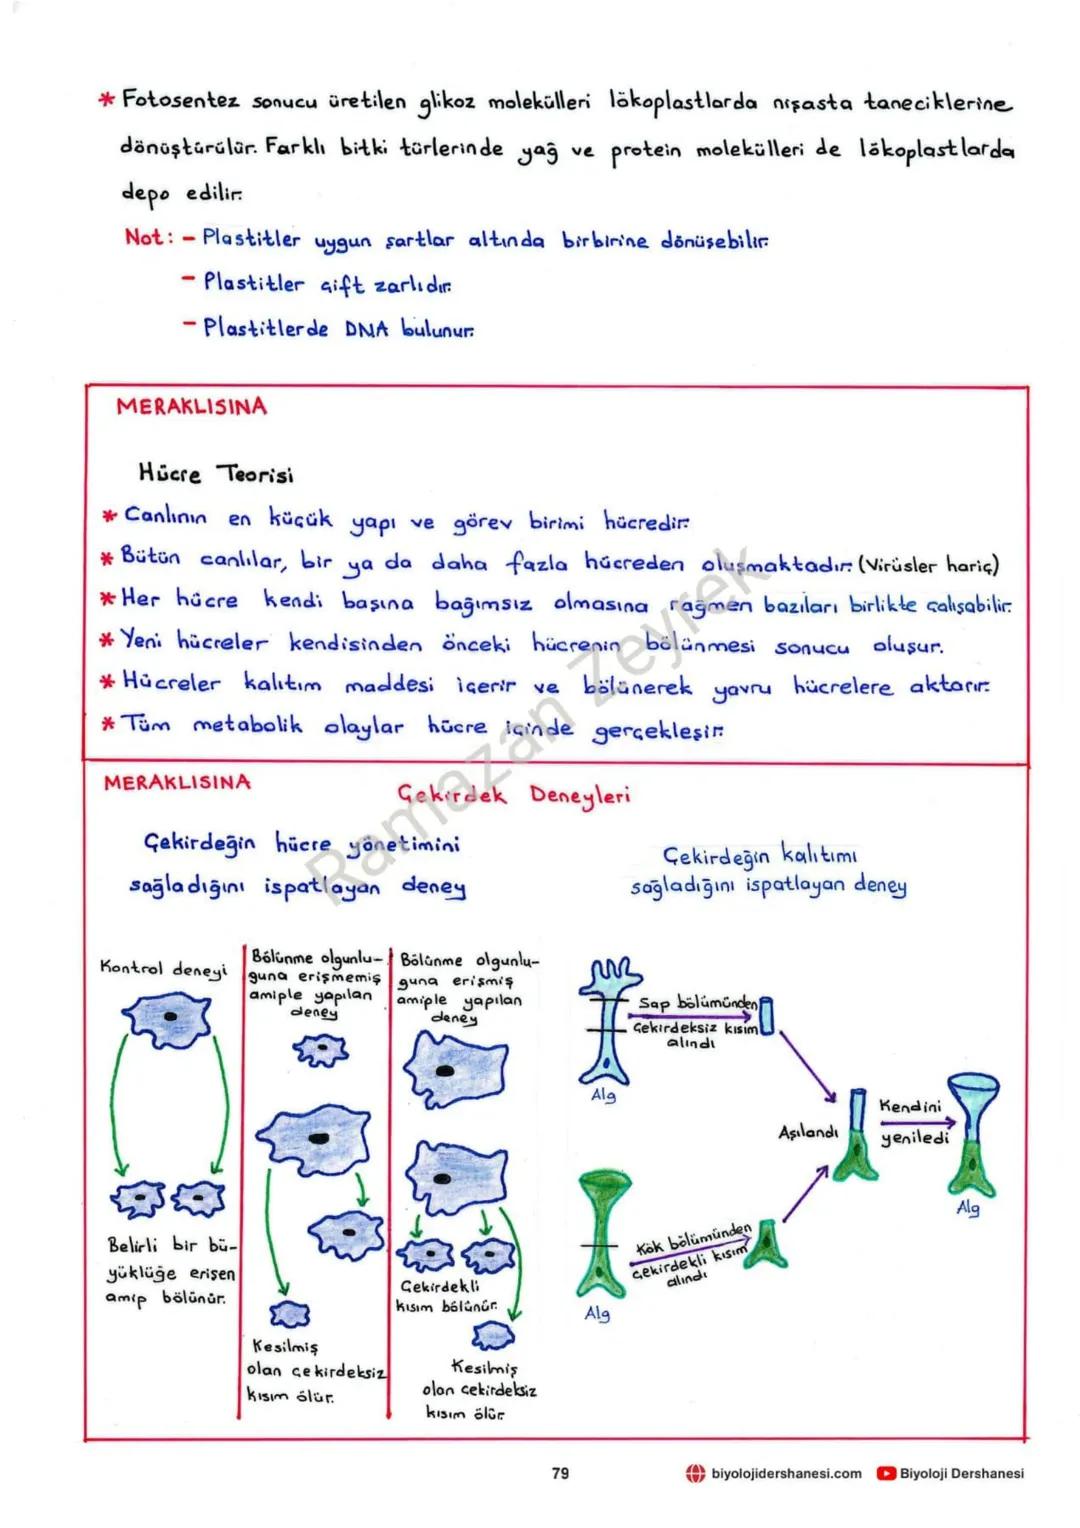 * Fotosentez sonucu üretilen glikoz molekülleri lökoplastlarda nişasta taneciklerine
dönüştürülür. Farklı bitki türlerinde yağ ve protein molekülleri de lökoplastlarda
depo edilir.
Not: - Plastitler uygun şartlar altında birbirine dönüşebilir.
- Plastitler çift zarlıdır.
- Plastitlerde DNA bulunur.
MERAKLISINA
Hücre Teorisi
* Canlının en küçük yapı ve görev birimi hücredir.
* Bütün canlılar, bir ya da daha fazla hücreden oluşmaktadır. (Virüsler hariç)
* Her hücre kendi başına bağımsız olmasına rağmen bazıları birlikte çalışabilir.
* Yeni hücreler kendisinden önceki hücrenin bölünmesi sonucu oluşur.
* Hücreler kalıtım maddesi içerir ve bölünerek yavru hücrelere aktarır.
* Tüm metabolik olaylar hücre içinde gerçekleşir.
Ramazan Zeyrek
MERAKLISINA
Çekirdek Deneyleri
Çekirdeğin hücre yönetimini
sağladığını ispatlayan deney
Çekirdeğin kalıtımı
sağladığını ispatlayan deney
Kontrol deneyi
Belirli bir bü-
yüklüğe erişen
amip bölünür.
Bölünme olgunlu-
ğuna erişmemiş
amiple yapılan
deney
Kesilmiş
olan çekirdeksiz
kısım ölür.
Bölünme olgunlu-
ğuna erişmiş
amiple yapılan
deney
Çekirdekli
kısım bölünür.
Kesilmiş
olan çekirdeksiz
kısım ölür.
Sap bölümünden
Çekirdeksiz kısım
alındı
Alg
Aşılandı
Kendini
yeniledi
Alg
Kök bölümünden
çekirdekli kısım
alındı
Alg
79
biyolojidershanesi.com
Biyoloji Dershanesi